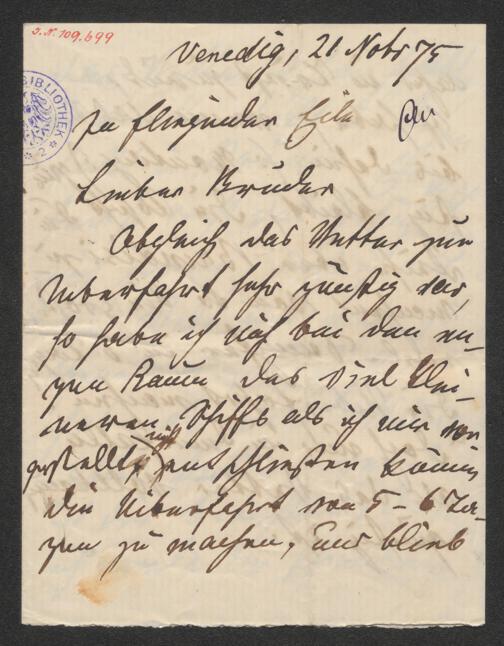 J.N. 109.699
BIBLIOTHEK
Venedig, 21 Nobr 75
In fliegender Eile
Lieber Bruder
Obgleich das Wetter zur
Überfahrt sehr günstig war,
so habe ich mich bei dem en-
gen Raum des viel klei-
neren Schiffs als ich mir vor
gestellt, nicht entschließen können
die Überfahrt von 5 - 6 Ta-
gen zu machen, und blieb